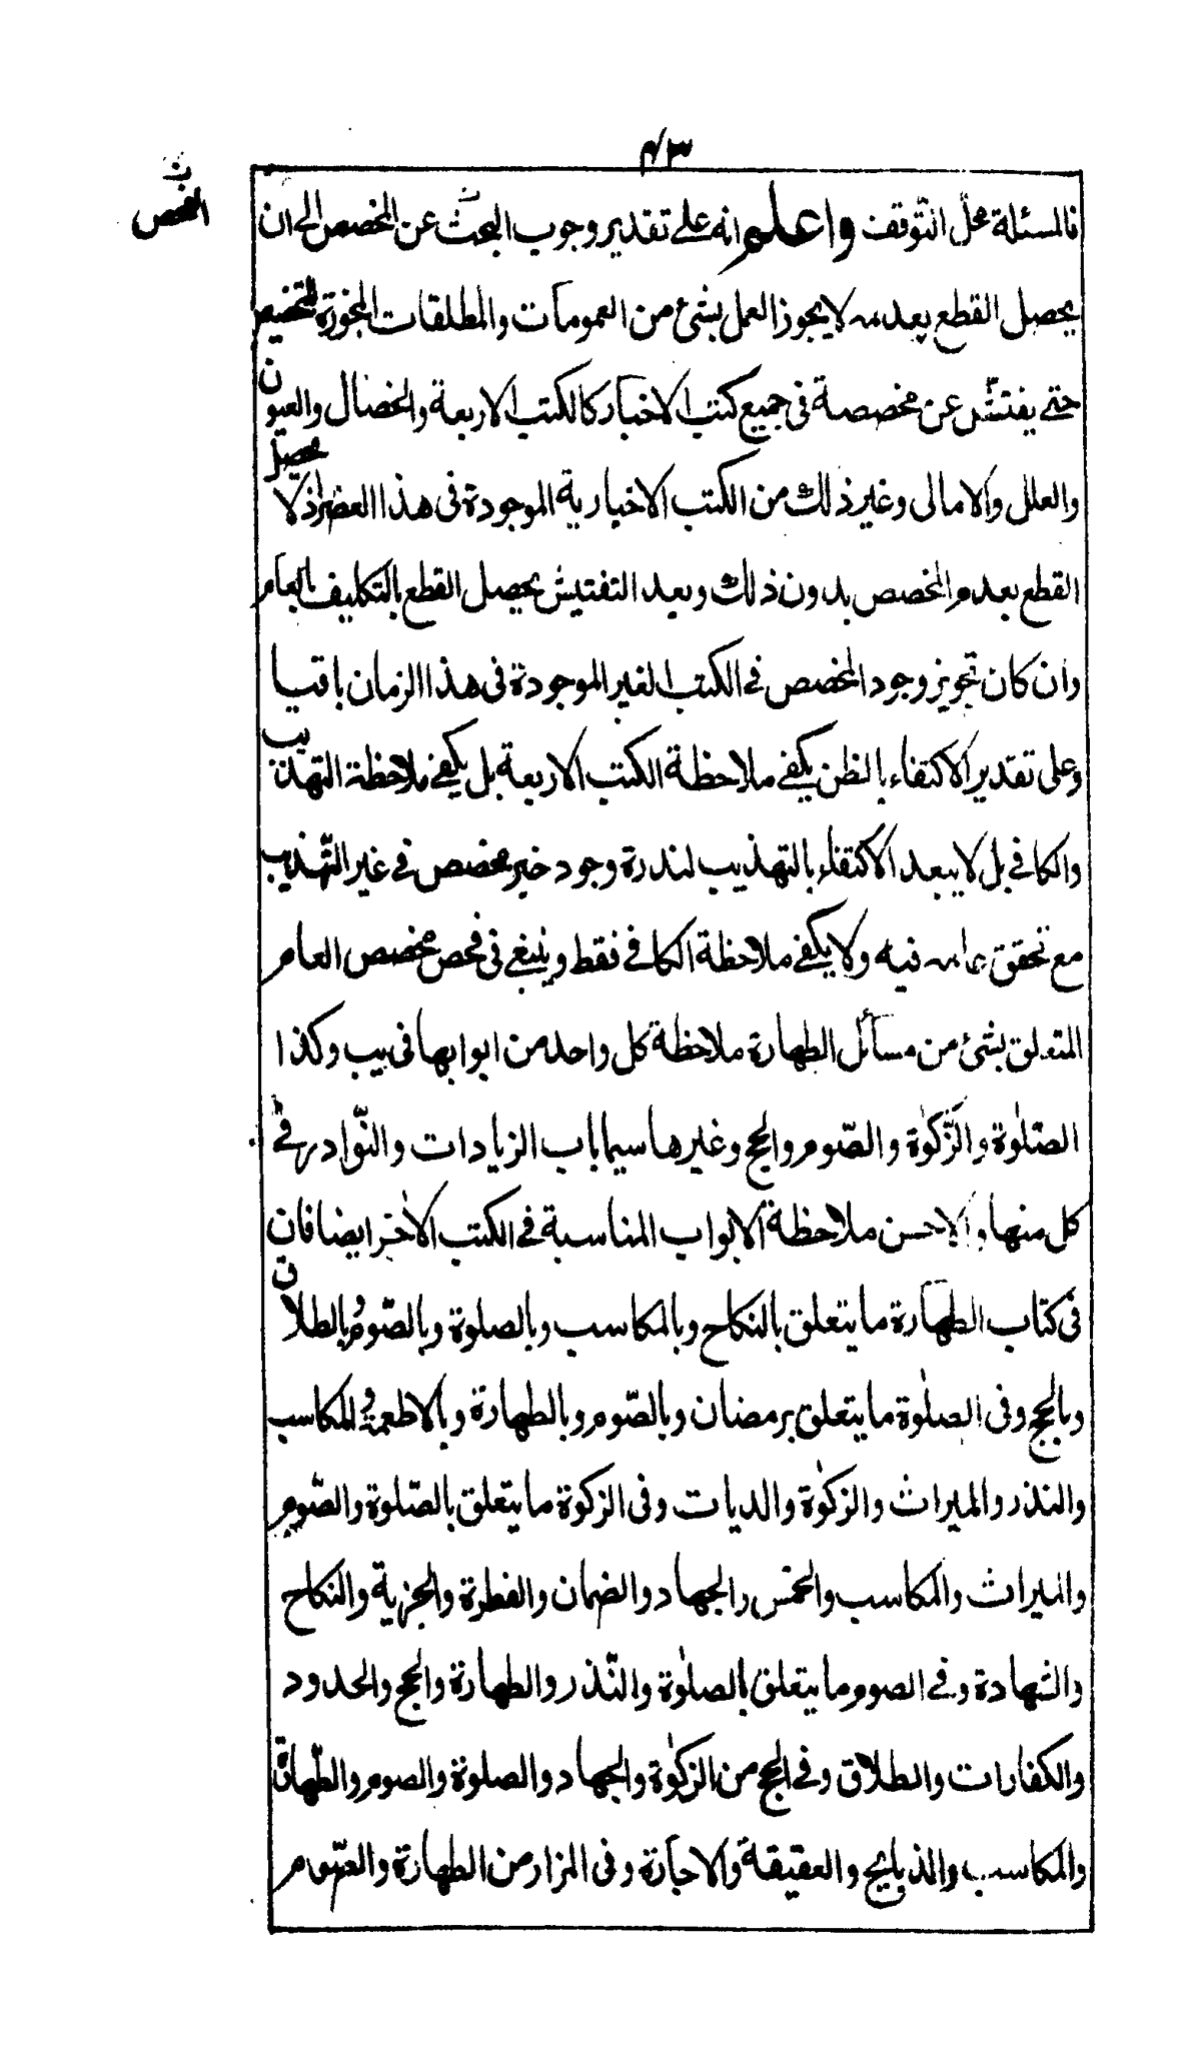 ٤٣
الفحص
ن
فالمسئلة محلّ التّوقف واعلم انه على تقدير وجوب البحث عن المخصص الى ان
يحصل القطع بعدمه لا يجوز العمل بشئ من العمومات والمطلقات المجوزة للتخصيص
حتى يفتش عن مخصصة فى جميع كتب الاخبار كالكتب الاربعة والخصال والعيون
والعلل والامالى وغير ذلك من الكتب الاخبارية الموجودة فى هذا العصر اذ لا يحصل
القطع بعدم المخصص بدون ذلك وبعد التفتيش يحصل القطع بالتكليف بالعام
وان كان تجويز وجود المخصص فى الكتب الغير الموجودة فى هذا الزمان باقيا
وعلى تقدير الاكتفاء بالظن يكفى ملاحظة الكتب الاربعة بل يكفى ملاحظة التهذيب
والكافى بل لا يبعد الاكتفاء بالتهذيب لندرة وجود خبر مخصص فى غير التّهذيب
مع تحقق عامه فيه ولا يكفى ملاحظة الكافى فقط وينبغى فى فحص مخصص العام
المتعلق بشئ من مسائل الطهارة ملاحظة كل واحد من ابوابها فى يب وكذا
الصّلوة والزّكوة والصّوم والحج وغيرها سيما باب الزيادات والنّوادر فى
كل منها والاحسن ملاحظة الابواب المناسبة فى الكتب الاخر ايضا فان
فى كتاب الطهارة ما يتعلق بالنكاح وبالمكاسب وبالصلوة وبالصّوم وبالطلاق
وبالحج وفى الصلوة ما يتعلق برمضان وبالصّوم وبالطهارة وبالاطعمة والمكاسب
والنذر والميراث والزكوة والديات وفى الزكوة ما يتعلق بالصّلوة والصّوم
والميراث والمكاسب والخمس والجهاد والضمان والفطرة والجزية والنكاح
والشهادة وفى الصوم ما يتعلق بالصلوة والنّذر والطهارة والحج والحدود
والكفارات والطلاق وفى الحج من الزكوة والجهاد والصلوة والصوم والطّهارة
والمكاسب والذبايح والعقيقة والاجارة وفى المزار من الطهارة والصّوم